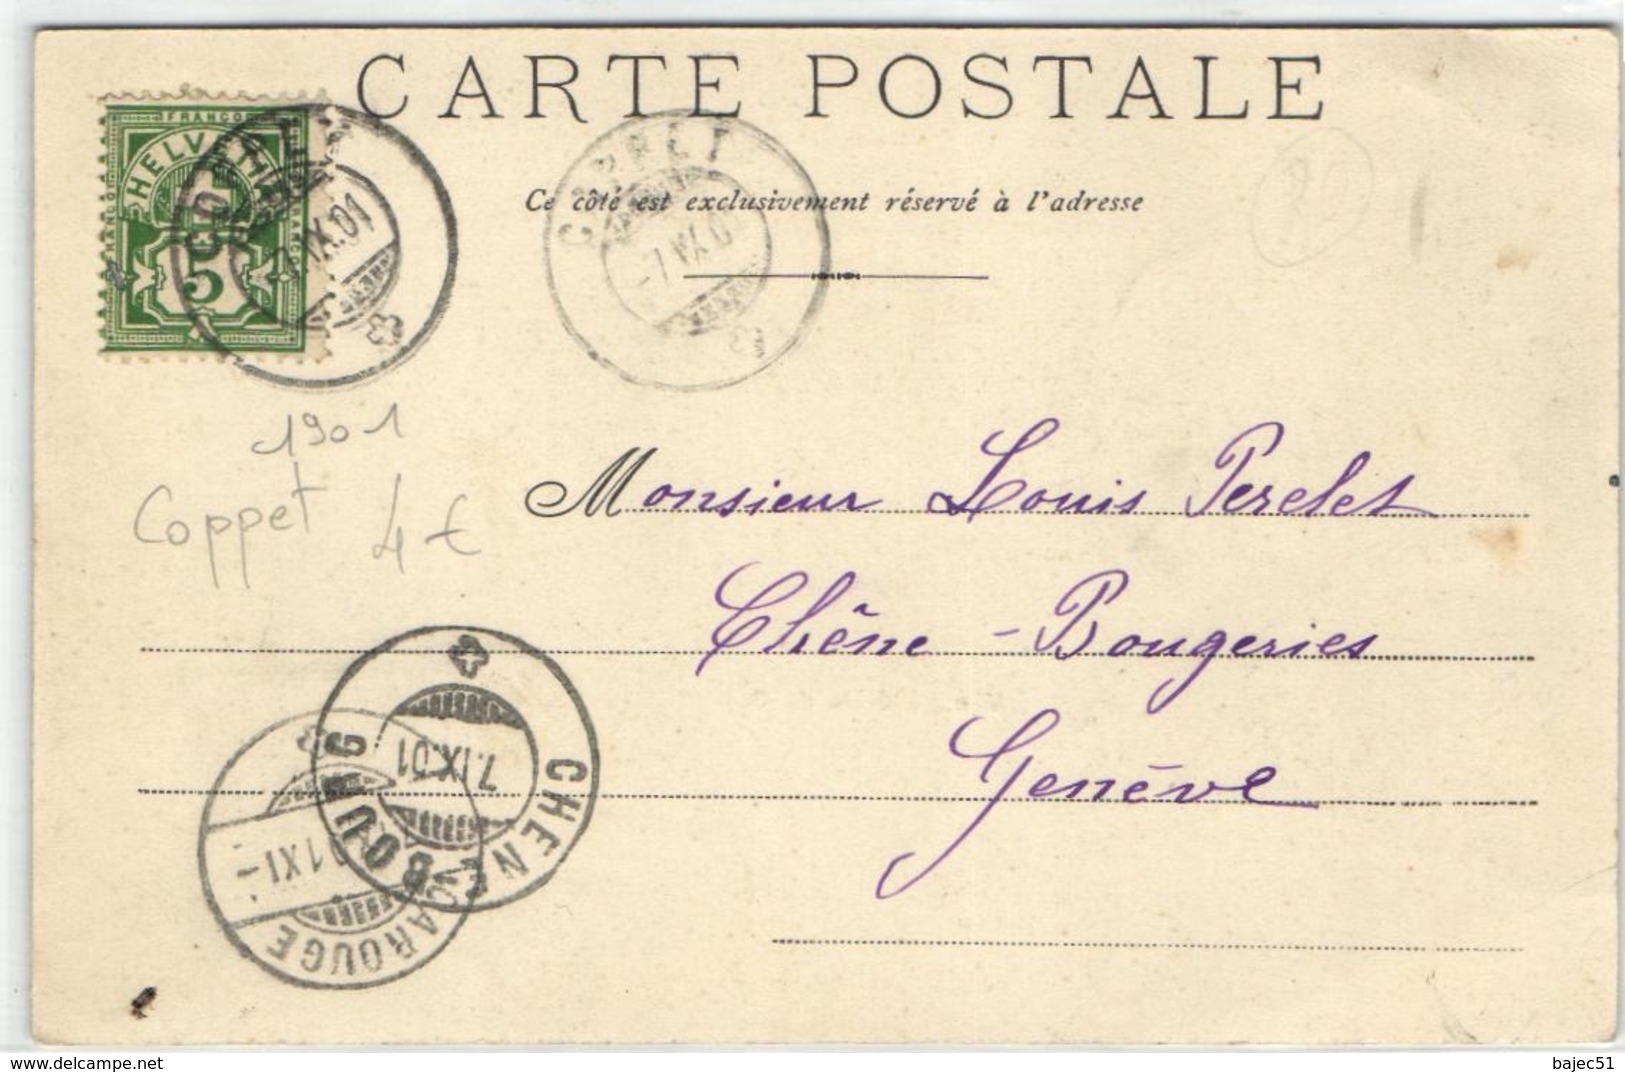 CARTE POSTALE
FRANCO
HELVETIA
FRANCO
FRANCO
5
IX.01
COPPET
Ce côté est exclusivement réservé à l'adresse
1901
Coppet 4€
Monsieur Louis Perelet
Chêne-Bougeries
Genève
CHENE BOURG
7.IX.01
CAROUGE
1 XI
delcampe.net
bajec51